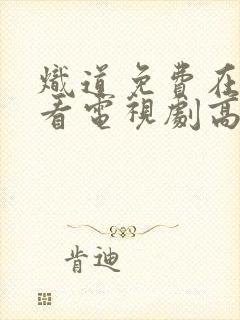 熾道免費在
看電視劇高
肯迪